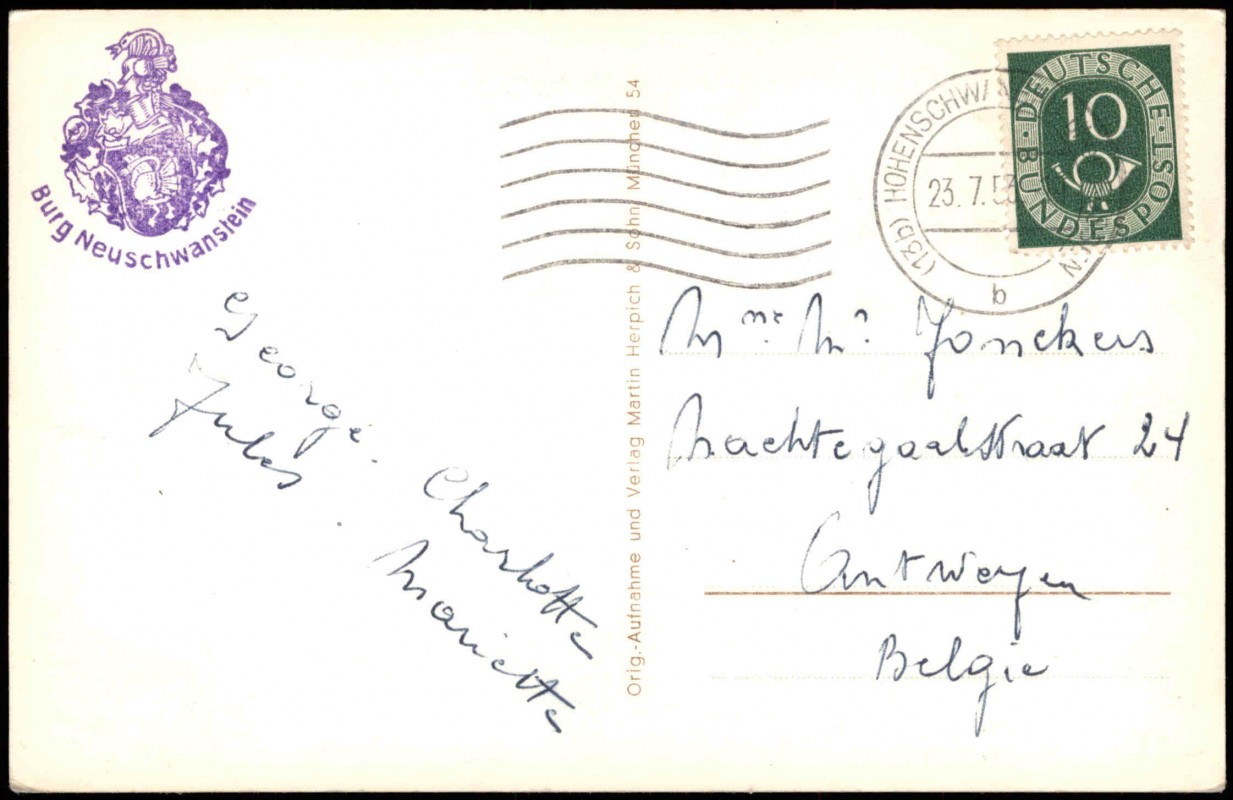 Burg Neuschwanstein
George. Charlotte
Jules. Mariette
Orig.-Aufnahme und Verlag Martin Herpich & Sohn, München 54
(13b) HOHENSCHWA
23.7.53
b
DEUTSCHE BUNDESPOST
10
Mme. Mr Jonckers
Nachtegaalstraat 24
Antwerpen
Belgie